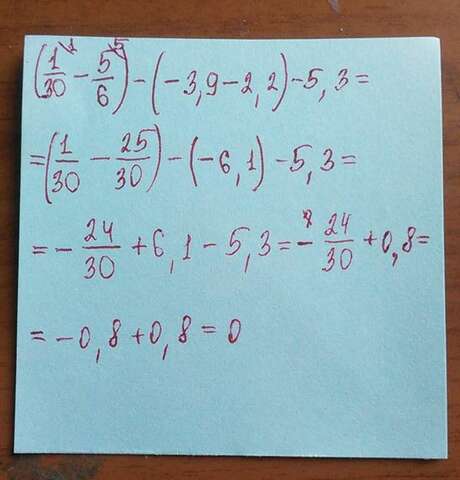 (1/30 \1 - 5/6 \5) - (-3,9-2,2)-5,3=
=(1/30 - 25/30) - (-6,1) -5,3=
=- 24/30 +6,1-5,3=- 24/30 +0,8=
=-0,8+0,8=0